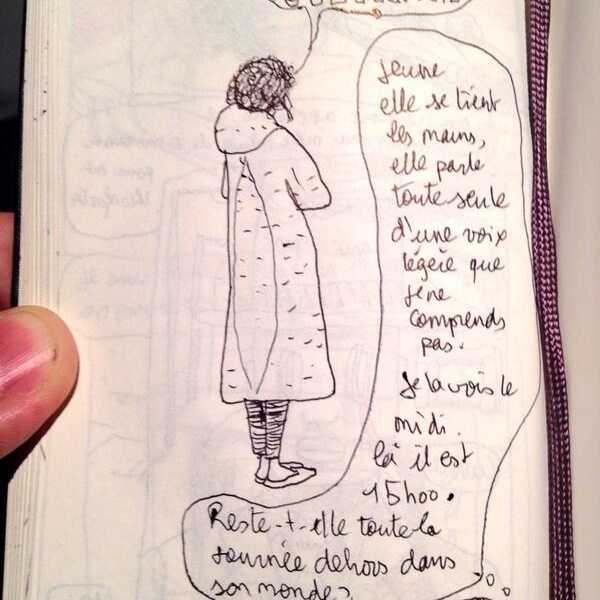 Jeune
elle se tient
les mains,
elle parle
toute seule
d'une voix
légère que
je ne
comprends
pas.
Je la vois le
midi.
là il est
15h00.
Reste-t-elle toute la
journée dehors dans
son monde?